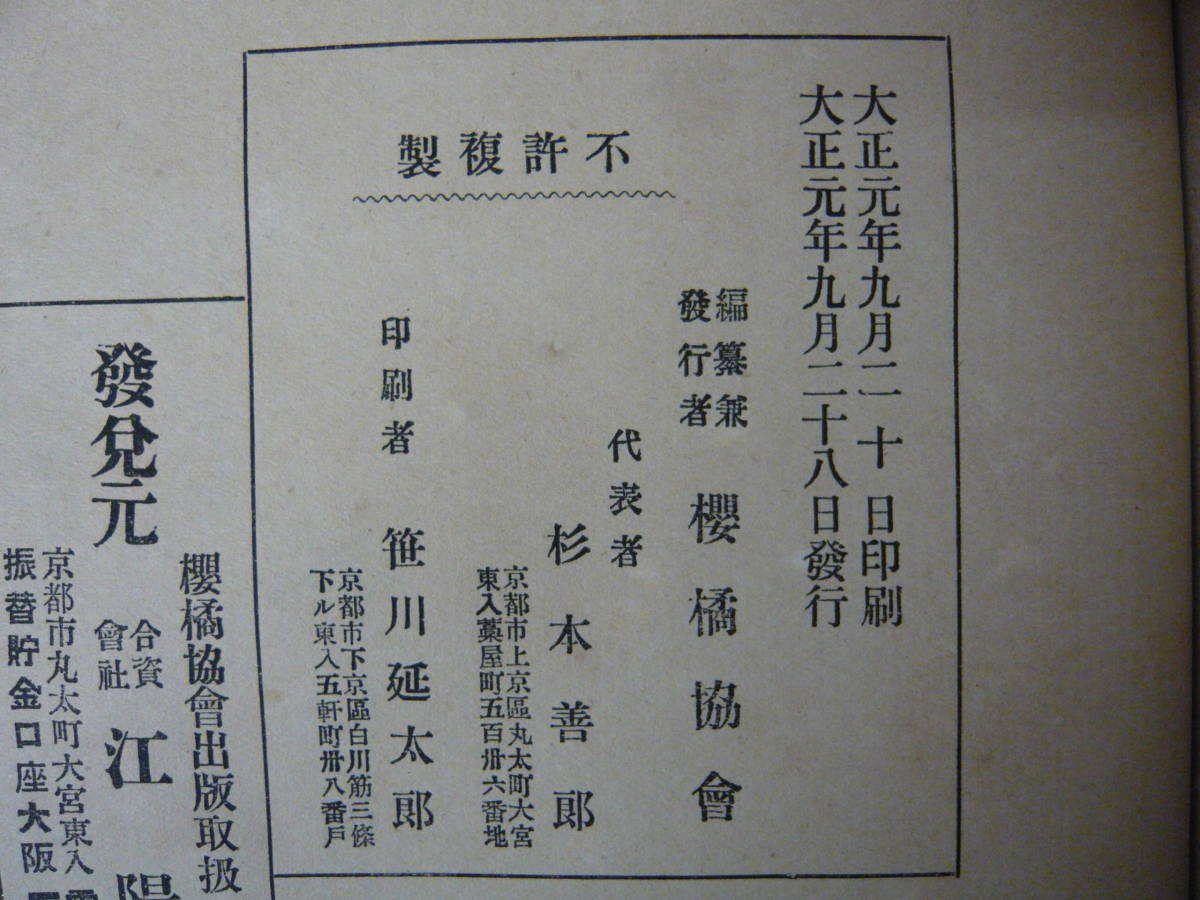 大正元年九月二十日印刷
大正元年九月二十八日發行
不許複製
編纂兼
發行者
櫻橘協會
代表者
杉本善郎
京都市上京區丸太町大宮
東入藁屋町五百卅六番地
印刷者
笹川延太郎
京都市下京區白川筋三條
下ル東入五軒町卅八番戸
發兌元
櫻橘協會出版取扱
合資
會社
江陽
京都市丸太町大宮東入
振替貯金口座大阪